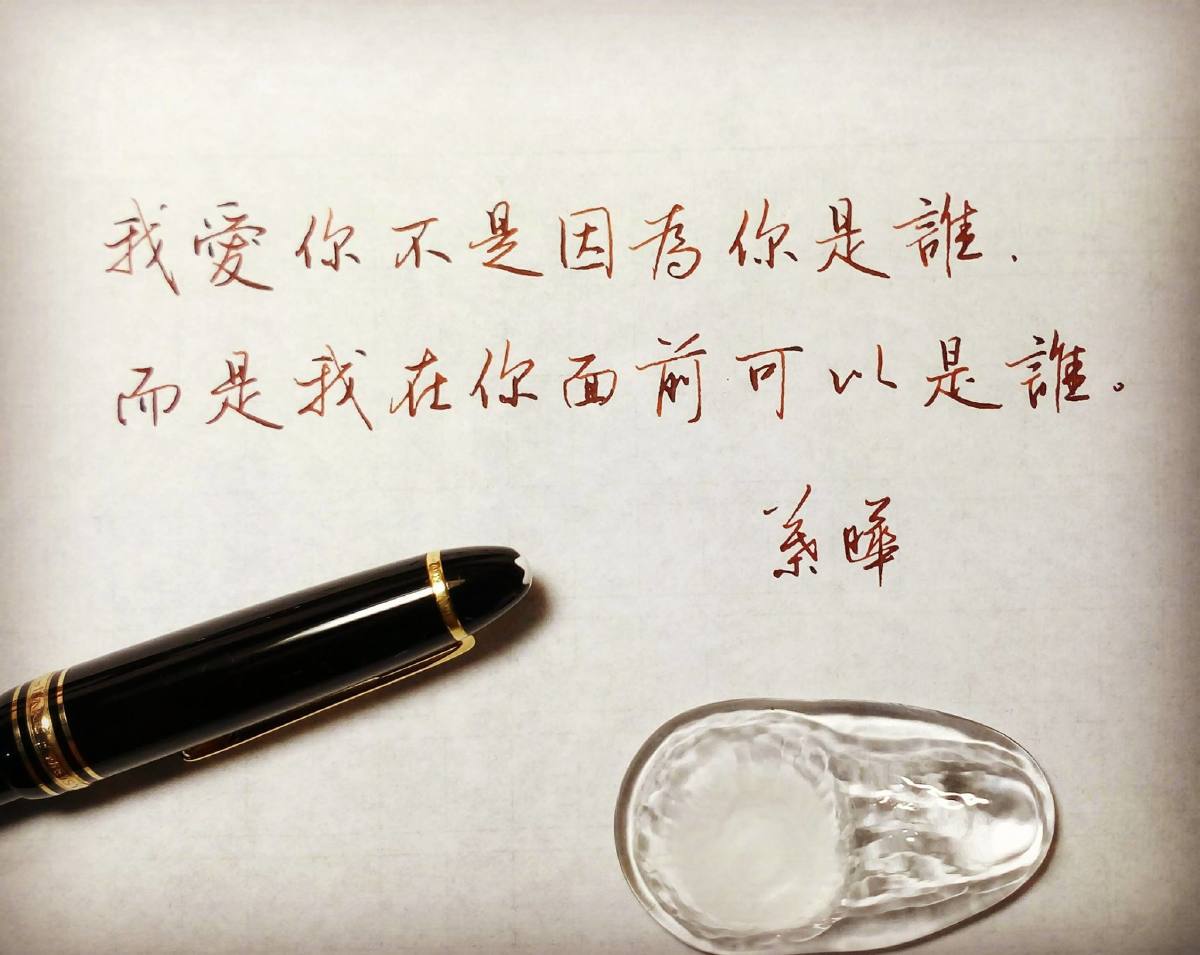 我愛你不是因為你是誰.
而是我在你面前可以是誰。
葉曄